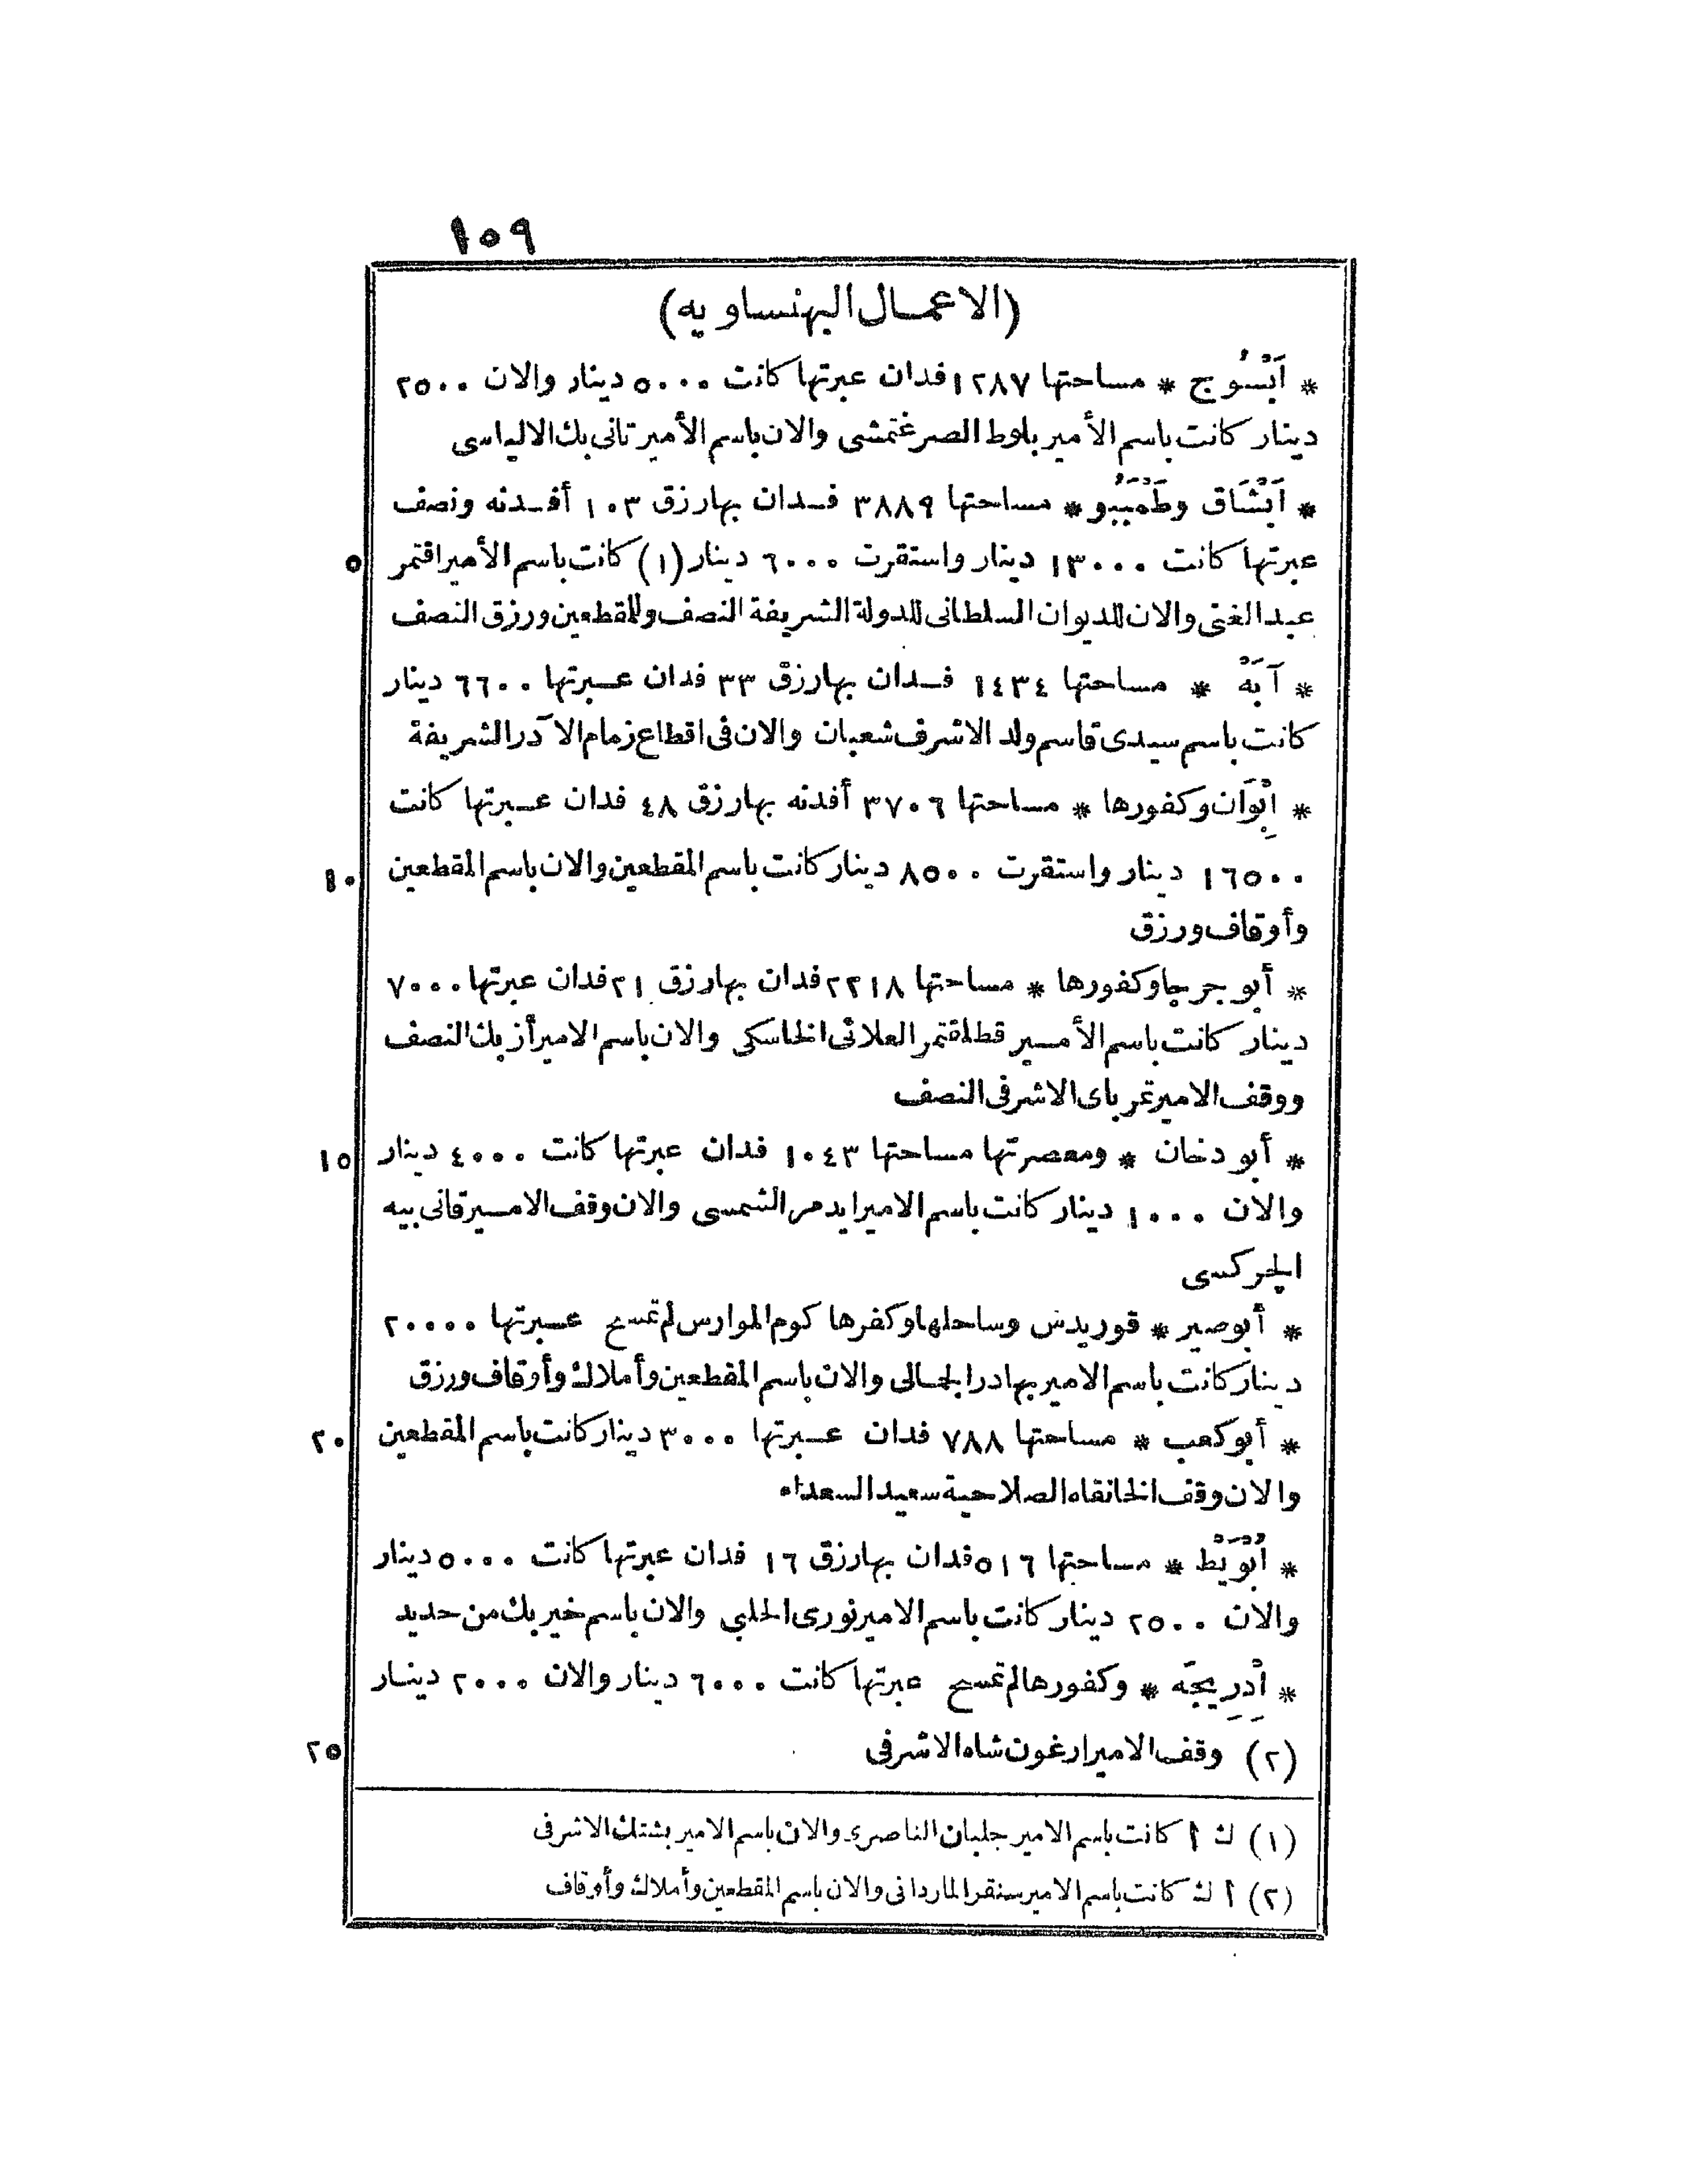 ١٥٩
(الاعمال البهنساويه)
* اَبْسُوج * مساحتها ١٢٨٧ فدان عبرتها كانت ٥٠٠٠ دينار والان ٢٥٠٠
دينار كانت باسم الأمير بلوط الصرغتمشى والان باسم الأمير تانى بك الالياسى
* اَبْشَاق وطَمْبَبُو * مساحتها ٣٨٨٩ فدان بها رزق ١٠٣ أفدنه ونصف
٥ عبرتها كانت ١٣٠٠٠ دينار واستقرت ٦٠٠٠ دينار (١) كانت باسم الأمير اقتمر
عبد الغنى والان للديوان السلطانى للدولة الشريفة النصف وللمقطعين ورزق النصف
* آبَهْ * مساحتها ١٤٣٤ فدان بها رزق ٣٣ فدان عبرتها ٦٦٠٠ دينار
كانت باسم سيدى قاسم ولد الاشرف شعبان والان فى اقطاع زمام الآدر الشريفة
* اِبْوَان وكفورها * مساحتها ٣٧٠٦ أفدنه بها رزق ٤٨ فدان عبرتها كانت
١٠ ١٦٥٠٠ دينار واستقرت ٨٥٠٠ دينار كانت باسم المقطعين والان باسم المقطعين
وأوقاف ورزق
* أبو جرجا وكفورها * مساحتها ٢٢١٨ فدان بها رزق ٢١ فدان عبرتها ٧٠٠٠
دينار كانت باسم الأمير قطلقتمر العلائى الخاسكى والان باسم الامير أزبك النصف
ووقف الامير تمرباى الاشرفى النصف
١٥ * أبو دخان * ومعصرتها مساحتها ١٠٤٣ فدان عبرتها كانت ٤٠٠٠ دينار
والان ١٠٠٠ دينار كانت باسم الامير ايدمر الشمسى والان وقف الامير قانى بيه
الجركسى
* أبو صير * قوريدس وساحلها وكفرها كوم الموارس لم تمسح عبرتها ٢٠٠٠٠
دينار كانت باسم الامير بهادر الجمالى والان باسم المقطعين وأملاك وأوقاف ورزق
٢٠ * أبو كعب * مساحتها ٧٨٨ فدان عبرتها ٣٠٠٠ دينار كانت باسم المقطعين
والان وقف الخانقاه الصلاحية سعيد السعداء
* اُبْوَيْط * مساحتها ٥١٦ فدان بها رزق ١٦ فدان عبرتها كانت ٥٠٠٠ دينار
والان ٢٥٠٠ دينار كانت باسم الامير نورى الحلبى والان باسم خير بك من حديد
* اِدْرِيجَه * وكفورها لم تمسح عبرتها كانت ٦٠٠٠ دينار والان ٢٠٠٠ دينار
٢٥ (٢) وقف الامير ارغون شاه الاشرفى
(١) ك أ كانت باسم الامير جلبان الناصرى والان باسم الامير بشتك الاشرفى
(٢) أ ك كانت باسم الامير سنقر الماردانى والان باسم المقطعين وأملاك وأوقاف